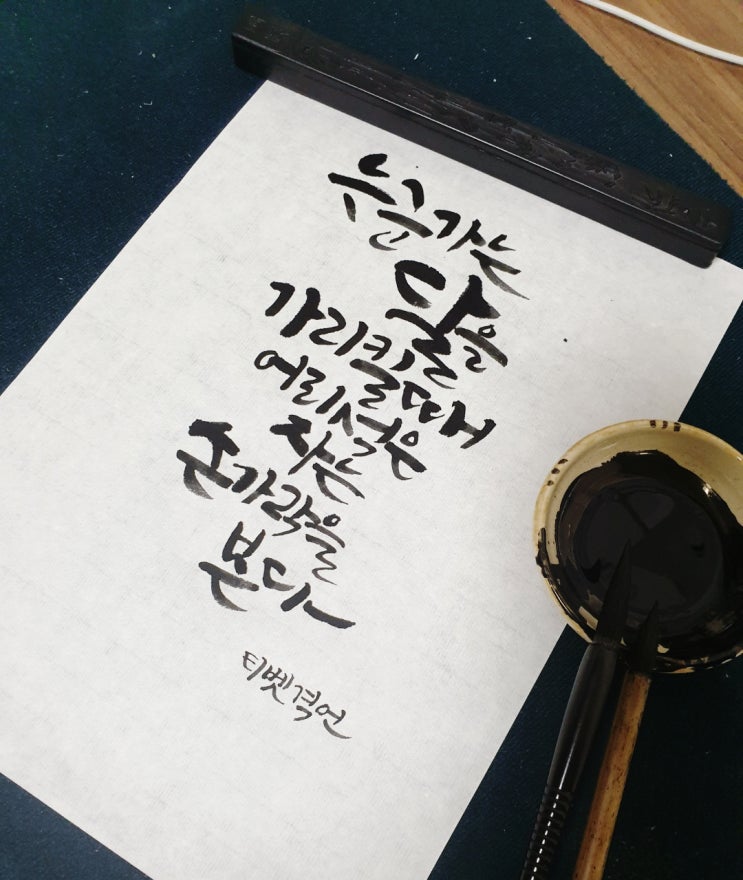 누군가는
달을
가리킬때
어리석은
자는
손가락을
본다
티벳격언